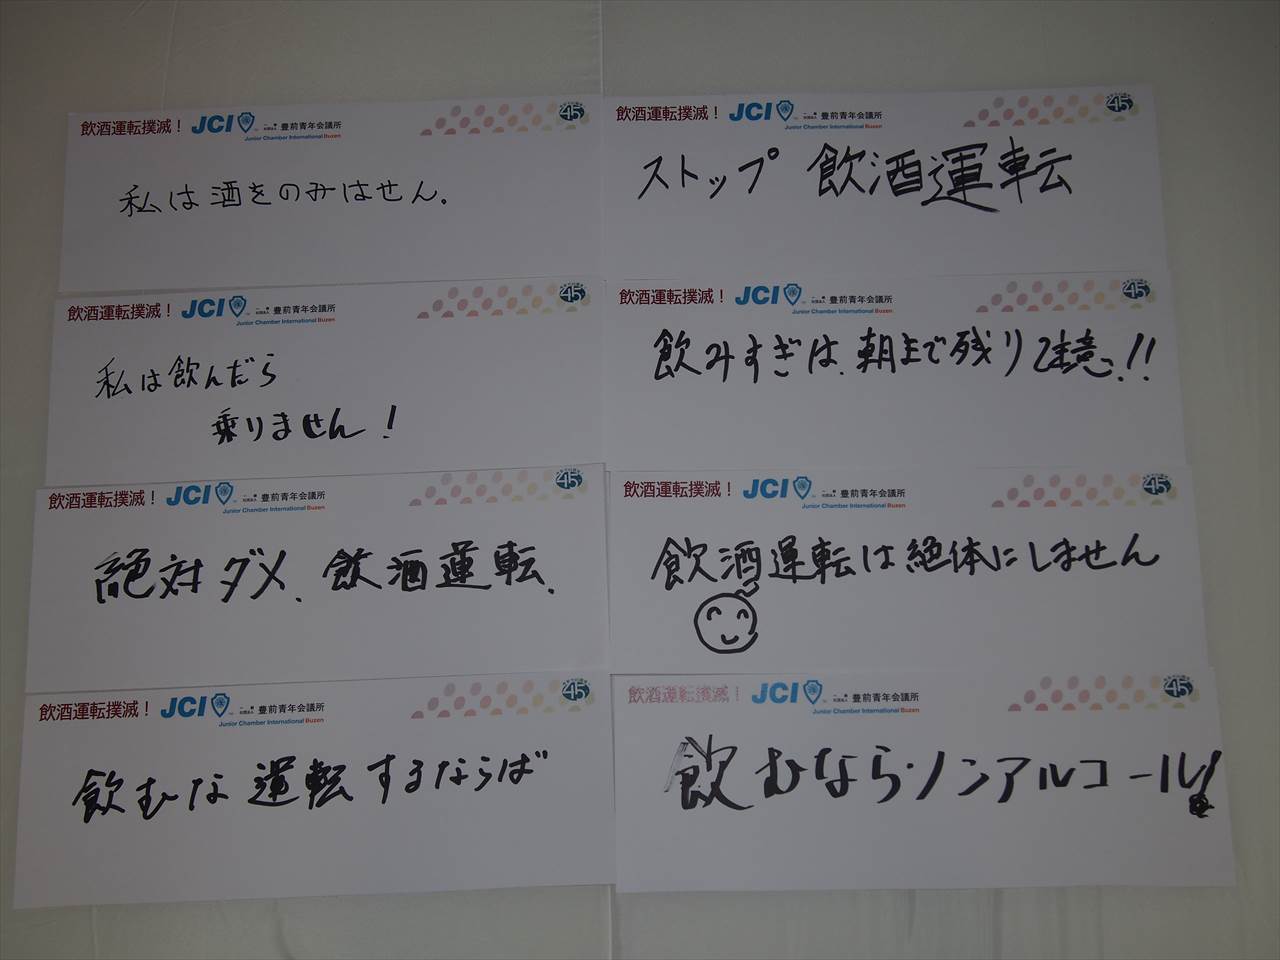 飲酒運転撲滅! JCI 一般社団法人 豊前青年会議所
Junior Chamber International Buzen
45
私は酒をのみはせん.
飲酒運転撲滅! JCI 一般社団法人 豊前青年会議所
Junior Chamber International Buzen
45
ストップ 飲酒運転
飲酒運転撲滅! JCI 一般社団法人 豊前青年会議所
Junior Chamber International Buzen
45
私は飲んだら
乗りません!
飲酒運転撲滅! JCI 一般社団法人 豊前青年会議所
Junior Chamber International Buzen
45
飲みすぎは、朝まで残り注意!!
飲酒運転撲滅! JCI 一般社団法人 豊前青年会議所
Junior Chamber International Buzen
45
絶対ダメ、飲酒運転.
飲酒運転撲滅! JCI 一般社団法人 豊前青年会議所
Junior Chamber International Buzen
45
飲酒運転は絶体にしません
飲酒運転撲滅! JCI 一般社団法人 豊前青年会議所
Junior Chamber International Buzen
45
飲むな 運転するならば
飲酒運転撲滅! JCI 一般社団法人 豊前青年会議所
Junior Chamber International Buzen
45
飲むなら・ノンアルコール!